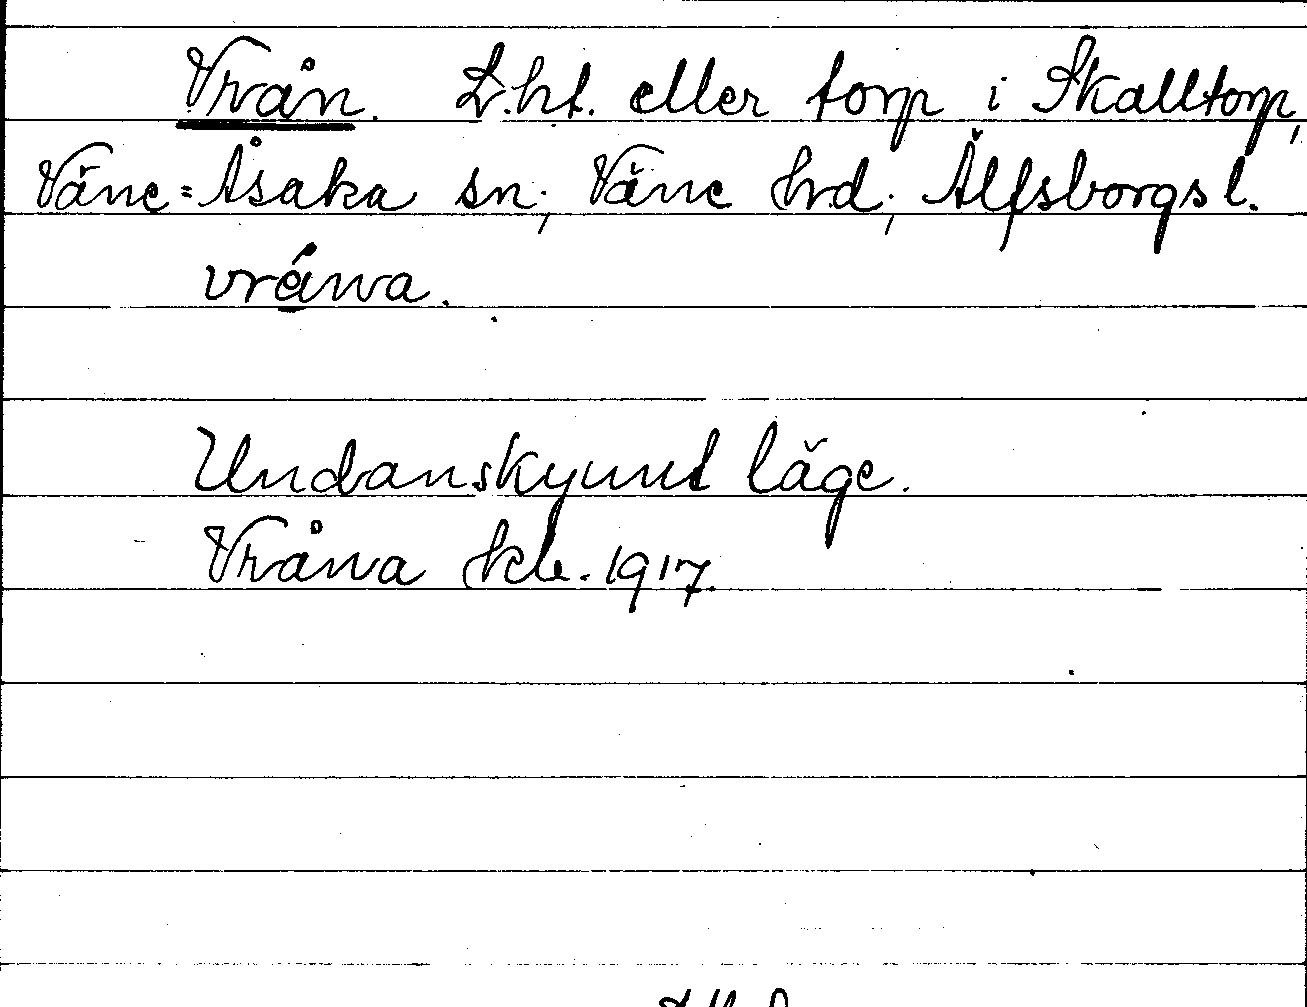 Vrån. L.ht. eller torp i Skalltorp,
Väne=Åsaka sn; Väne hrd; Älfsborgs l.
vråna.
Undanskymt läge.
Vråna 1917.